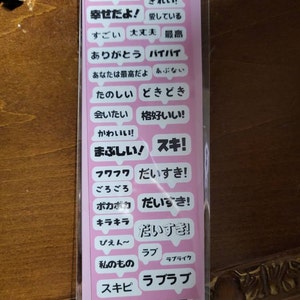 きれい!
幸せだよ! 愛している
すごい 大丈夫 最高
ありがとう バイバイ
あなたは最高だよ あぶない
たのしい どきどき
会いたい 格好いい!
かわいい!
まぶしい! スキ!
フワフワ だいすき!
ごろごろ
ポカポカ だいすき!
キラキラ だいすき!
ぴえん〜
ラブ
私のもの ラブライク
スキピ ラブラブ